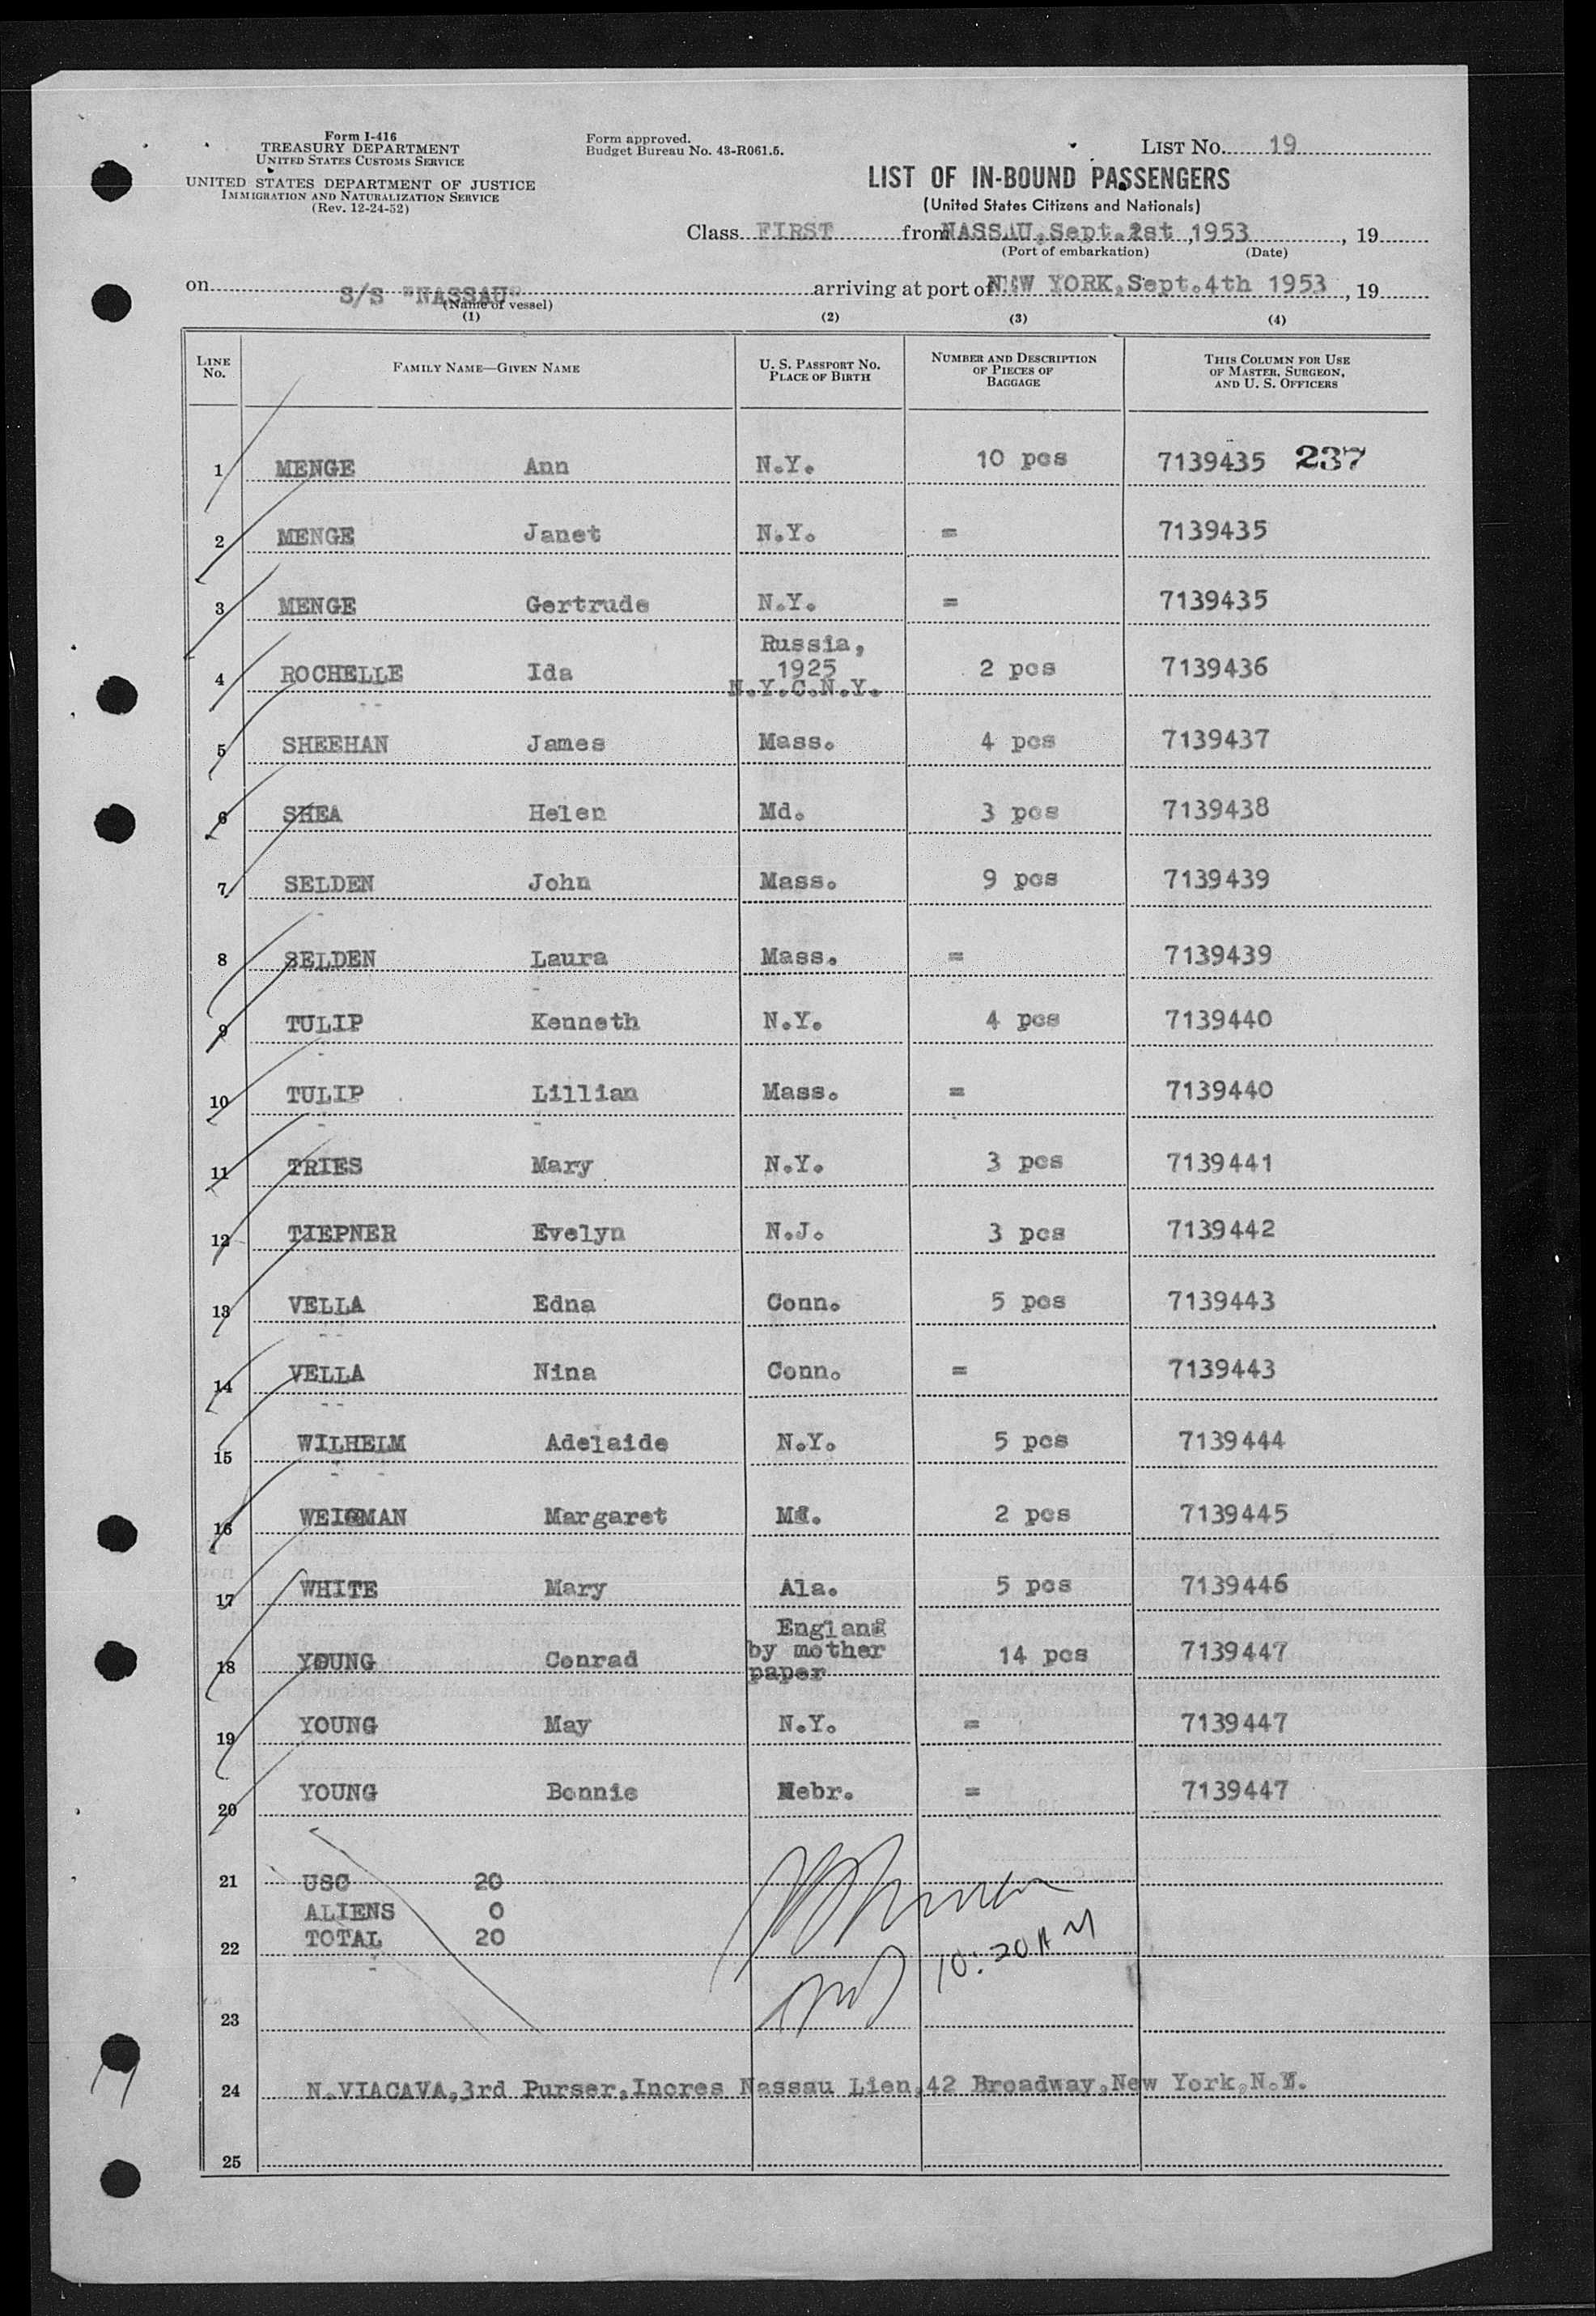 Form I-416
TREASURY DEPARTMENT
UNITED STATES CUSTOMS SERVICE
UNITED STATES DEPARTMENT OF JUSTICE
IMMIGRATION AND NATURALIZATION SERVICE
(Rev. 12-24-52)
Form approved.
Budget Bureau No. 43-R061.5.
LIST No. 19
LIST OF IN-BOUND PASSENGERS
(United States Citizens and Nationals)
Class FIRST from NASSAU, Sept. 1st, 1953, 19
(Port of embarkation) (Date)
on S/S "NASSAU" arriving at port of NEW YORK, Sept. 4th 1953, 19
(Name of vessel)
(1) (2) (3) (4)
LINE No. FAMILY NAME—GIVEN NAME U. S. PASSPORT NO. PLACE OF BIRTH NUMBER AND DESCRIPTION OF PIECES OF BAGGAGE THIS COLUMN FOR USE OF MASTER, SURGEON, AND U. S. OFFICERS
1 MENGE Ann N.Y. 10 pcs 7139435 237
2 MENGE Janet N.Y. = 7139435
3 MENGE Gertrude N.Y. = 7139435
4 ROCHELLE Ida Russia, 1925 N.Y.C.N.Y. 2 pcs 7139436
5 SHEEHAN James Mass. 4 pcs 7139437
6 SHEA Helen Md. 3 pcs 7139438
7 SELDEN John Mass. 9 pcs 7139439
8 SELDEN Laura Mass. = 7139439
9 TULIP Kenneth N.Y. 4 pcs 7139440
10 TULIP Lillian Mass. = 7139440
11 TRIES Mary N.Y. 3 pcs 7139441
12 TIEPNER Evelyn N.J. 3 pcs 7139442
13 VELLA Edna Conn. 5 pcs 7139443
14 VELLA Nina Conn. = 7139443
15 WILHELM Adelaide N.Y. 5 pcs 7139444
16 WEIGMAN Margaret Md. 2 pcs 7139445
17 WHITE Mary Ala. 5 pcs 7139446
18 YOUNG Conrad England by mother paper 14 pcs 7139447
19 YOUNG May N.Y. = 7139447
20 YOUNG Bonnie Nebr. = 7139447
21 USC 20
ALIENS 0
22 TOTAL 20
10:20 AM
23
24 N.VIACAVA,3rd Purser,Incres Nassau Lien,42 Broadway,New York,N.Y.
25
19